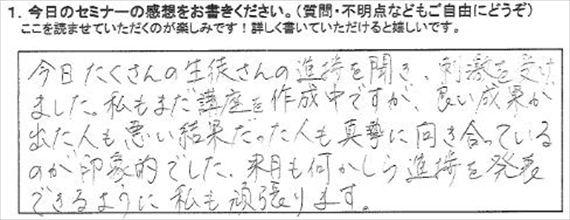 1. 今日のセミナーの感想をお書きください。（質問・不明点などもご自由にどうぞ）
ここを読ませていただくのが楽しみです！詳しく書いていただけると嬉しいです。
今日たくさんの生徒さんの進捗を聞き、刺激を受け
ました。私もまだ講座を作成中ですが、良い成果が
出た人も悪い結果だった人も真摯に向き合っている
のが印象的でした。来月も何かしら進捗を発表
できるように私も頑張ります。